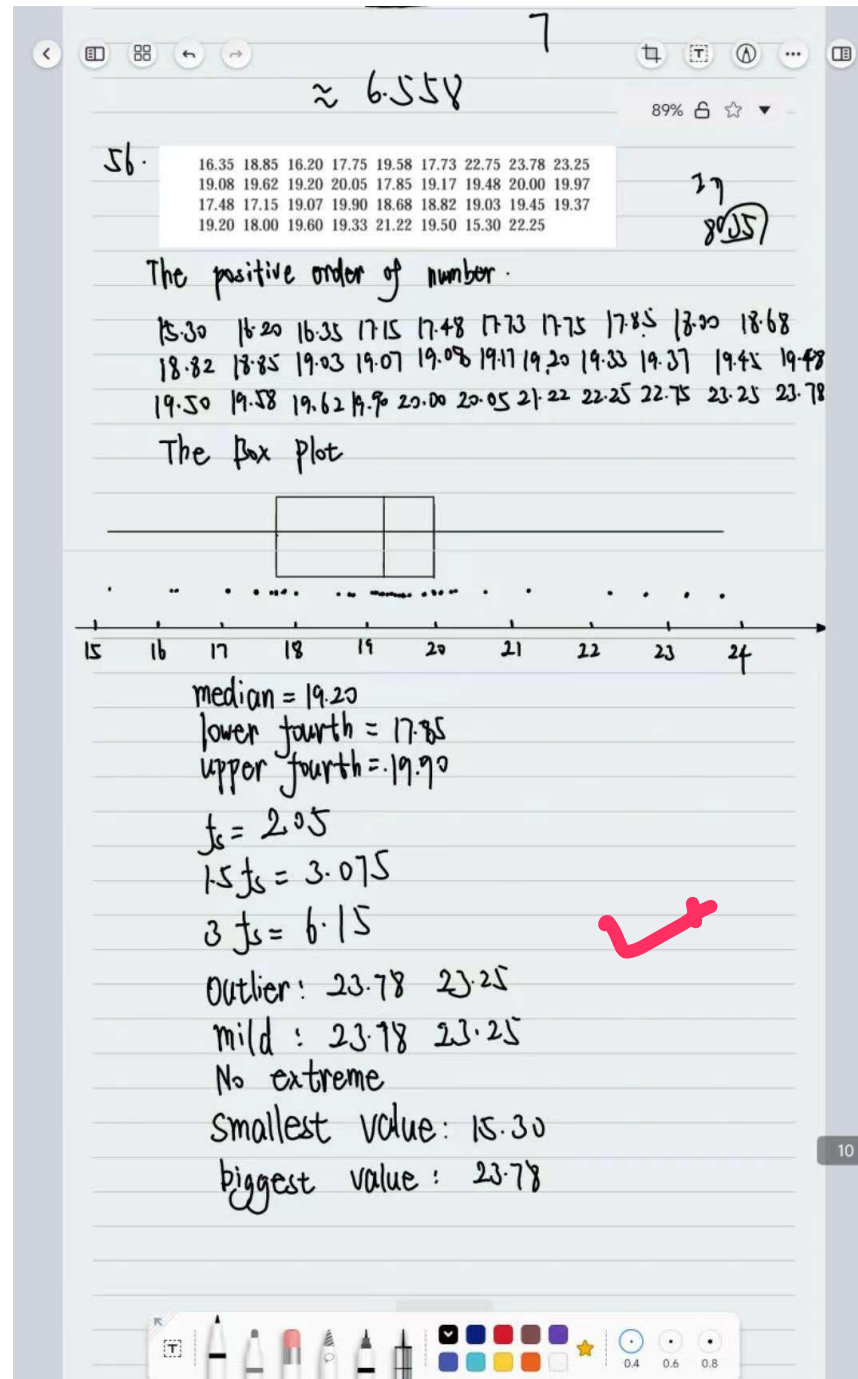 7
≈ 6.558
89%
56.
16.35 18.85 16.20 17.75 19.58 17.73 22.75 23.78 23.25
19.08 19.62 19.20 20.05 17.85 19.17 19.48 20.00 19.97
17.48 17.15 19.07 19.90 18.68 18.82 19.03 19.45 19.37
19.20 18.00 19.60 19.33 21.22 19.50 15.30 22.25
The positive order of number.
15.30 16.20 16.35 17.15 17.48 17.73 17.75 17.85 18.00 18.68
18.82 18.85 19.03 19.07 19.08 19.17 19.20 19.33 19.37 19.45 19.48
19.50 19.58 19.62 19.90 20.00 20.05 21.22 22.25 22.75 23.25 23.78
The Box plot
15 16 17 18 19 20 21 22 23 24
median = 19.20
lower fourth = 17.85
upper fourth = 19.90
fs = 2.05
1.5 fs = 3.075
3 fs = 6.15
Outlier: 23.78 23.25
mild : 23.78 23.25
No extreme
Smallest value: 15.30
biggest value : 23.78
10
T
0.4 0.6 0.8